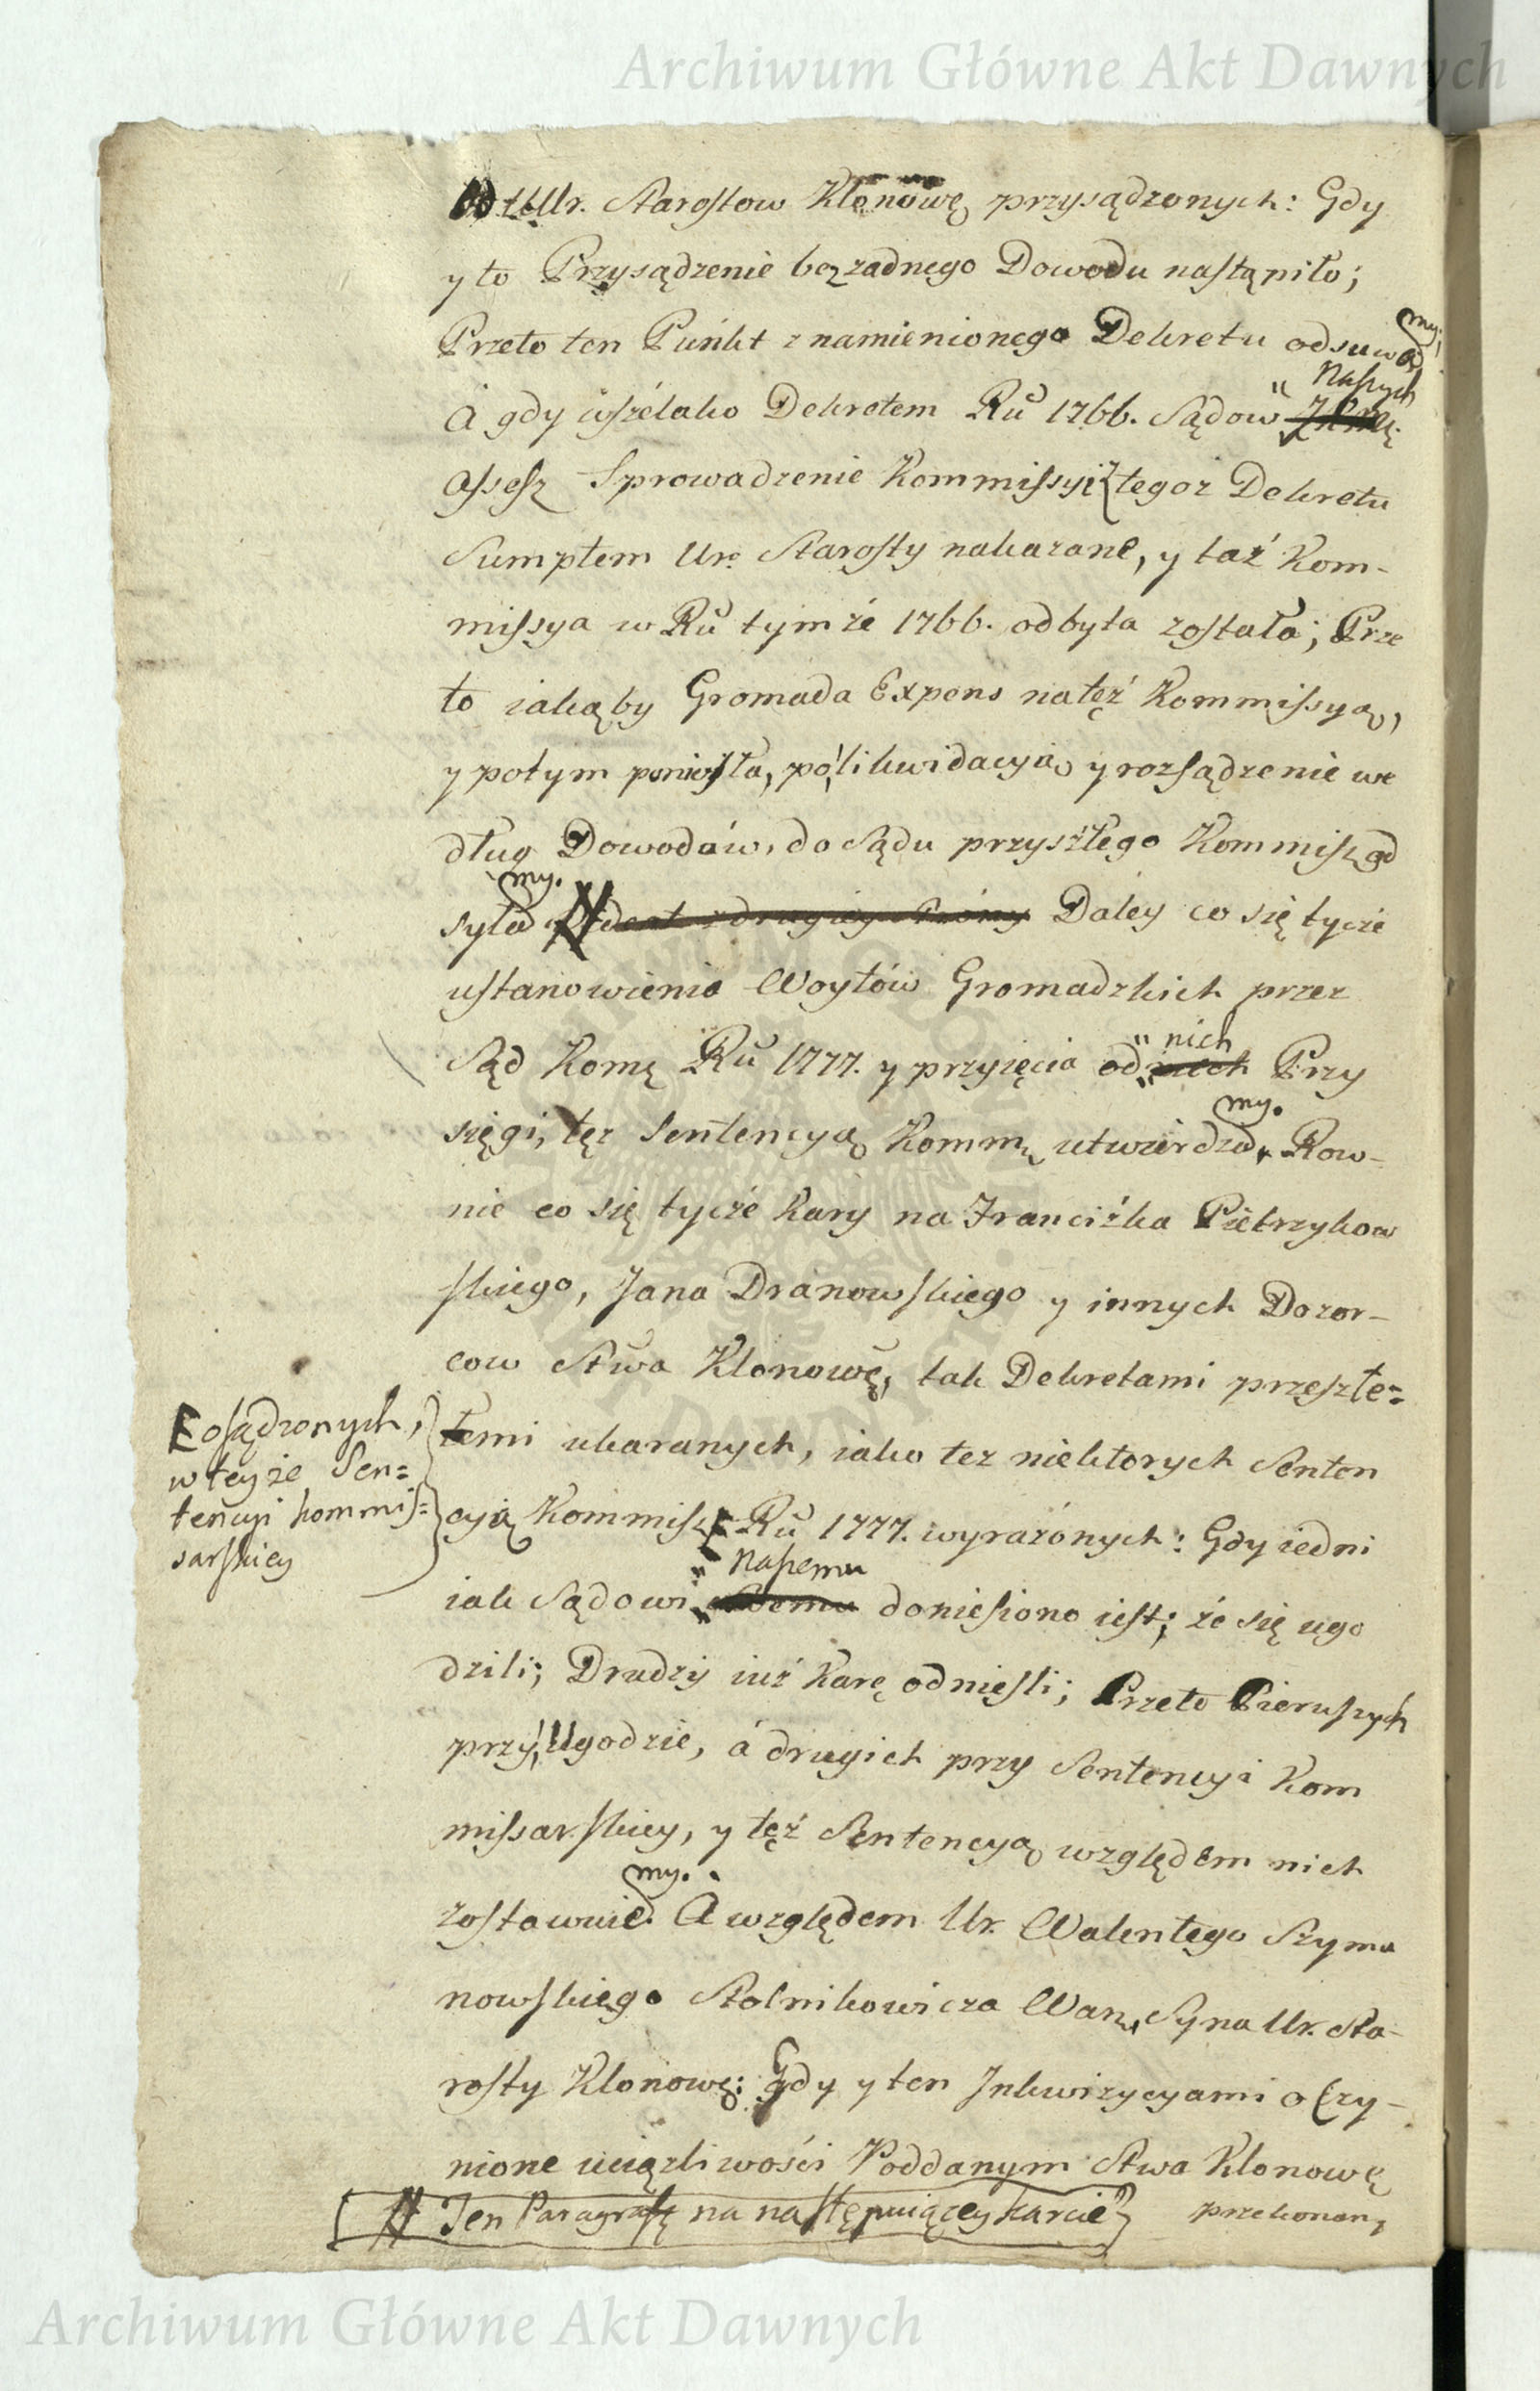 Archiwum Główne Akt Dawnych
od UUr. Starostow Klonowę przysądzonych: Gdy
y to Przysądzenie bez zadnego Dowodu nastąpiło;
Przeto ten Punkt znamienionego Dekretu odsuwa my.
A gdy wszelako Dekretem Ru 1766. Sądow Naszych
assess Sprowadzenie Kommissyi z tegoż Dekretu
Sumptem Ure Starosty nakazane, y taż Kom-
missya w Ru tymże 1766. odbyta została; Prze
to iakąby Gromada Expens na tęż Kommissyą,
y potym poniosła, po likwidacyią y rozsądzenie we
dług Dowodów, do Sądu przyszłego Kommisę od
syła my. # Daley co się tycze
ustanowienia Woytów Gromadzkich przez
Sąd Komę Ru 1777. y przyięcia od nich Przy
sięgi, tęż Sentencyą Kommę utwierdza my. Row-
nie co się tycze kary na Franciżka Pietrzykow
skiego, Jana Dranowskiego y innych Dozor-
cow Stwa Klonowę, tak Dekretami przeszłe=
temi ukaranych, iako tez niektorych Senten
cyią Kommisę Ru 1777. wyrażonych: Gdy iedni
osądzonych,
w teyże Sen=
tencyi kommis=
sarskiey
iak Sądowi Naszemu doniesiono iest; że się ugo
dzili; Drudzy iuż karę odnieśli; Przeto Pierwszych
przy Ugodzie, á drugich przy Sentencyi Kom
missarskiey, y tęż Sentencyą względem nich
zostawuie my. A względem Ur. Walentego Szyma
nowskiego Stolnikowicza Warę, Syna Ur. Sta-
rosty Klonowę: Gdy y ten Inkwizycyami o Czy-
nione uciązliwości Poddanym Stwa Klonowę
przekonany
# Ten Paragraf na następuiącey karcie
Archiwum Główne Akt Dawnych